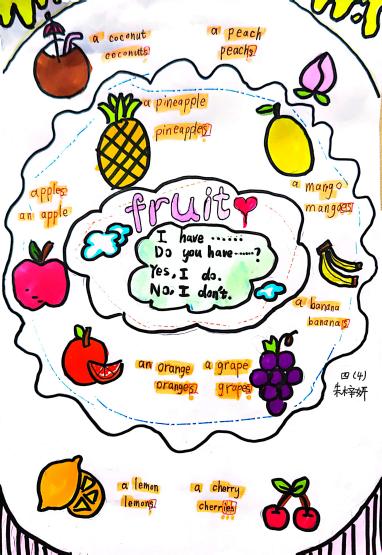 a coconut
coconuts
a peach
peachs
a pineapple
pineapples
a mango
mangoes
apples
an apple
fruit
I have ......
Do you have......?
Yes, I do.
No, I don't.
a banana
bananas
an orange
oranges
a grape
grapes
四(4)
朱梓妍
a lemon
lemons
a cherry
cherries